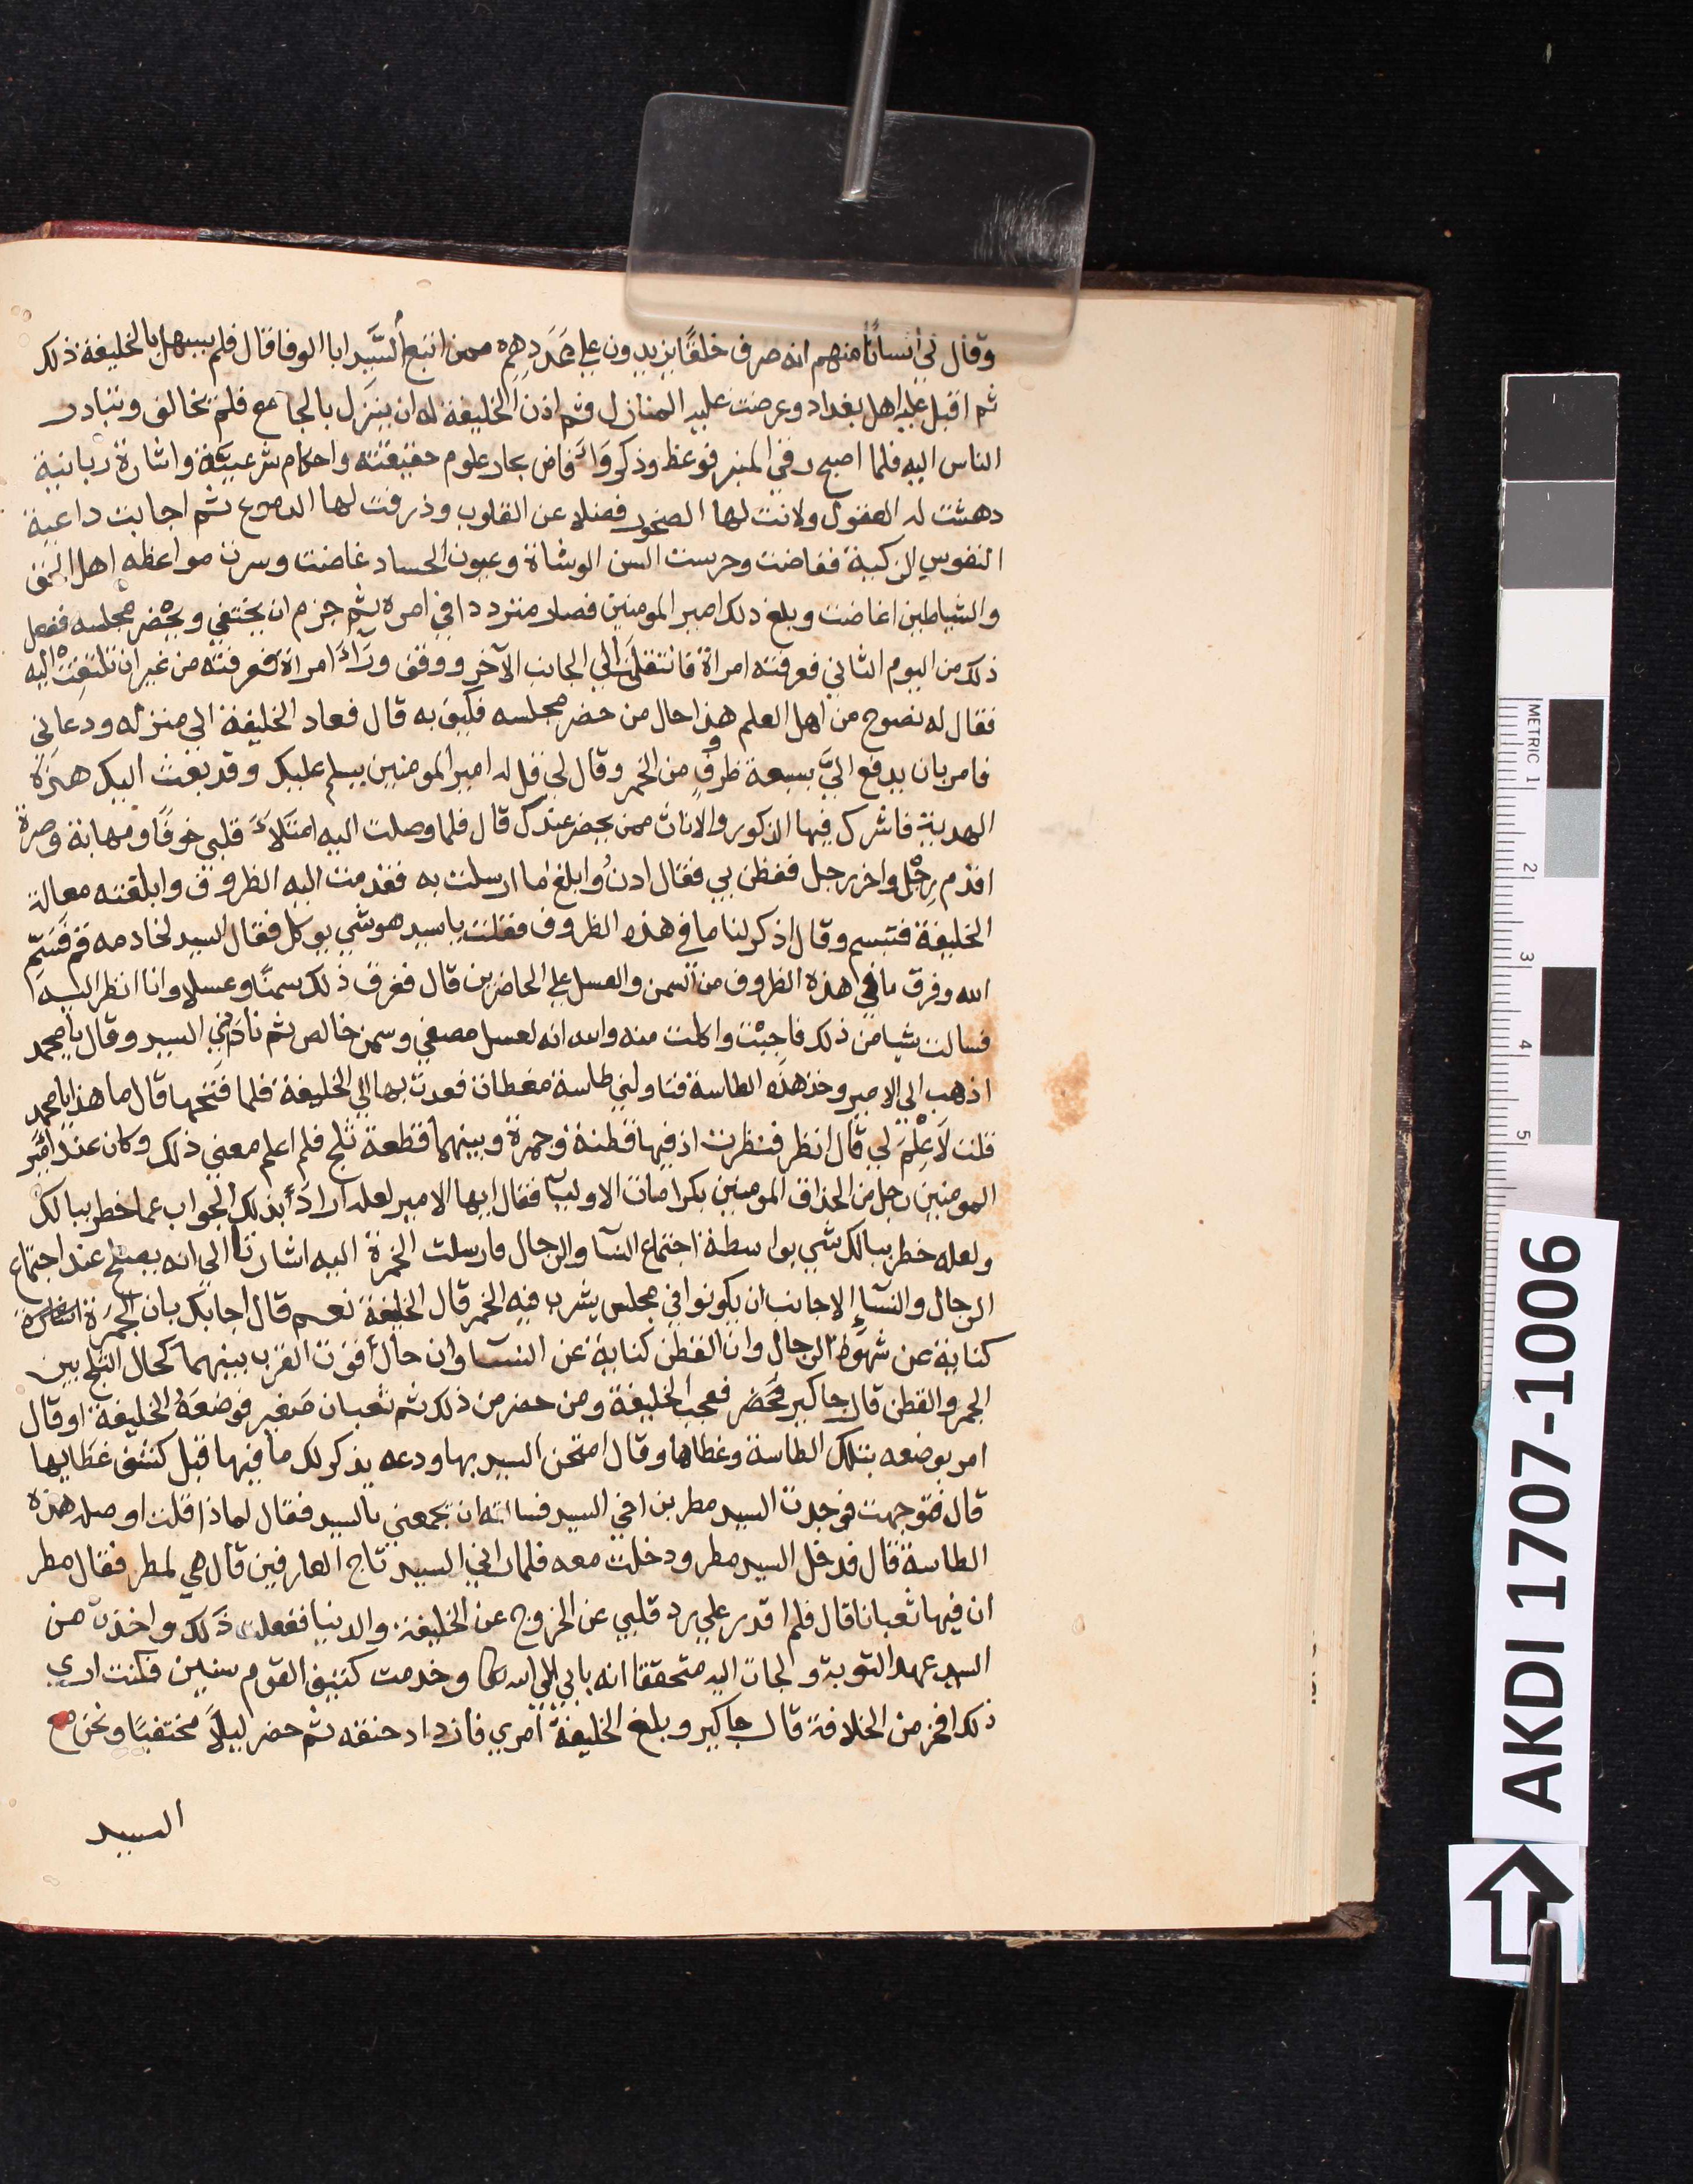 وقال لي أنساناً منهم انه صرف خلقًا يزيدون علي عَدَدِهِم ممن اتبع السَّيد ابا الوفا قال فلم يسهل بالخليفة ذلك
ثم اقبل عليه اهل بغداد وعرضت عليه المنازل فثم اذن الخليفة له ان ينزل بالجامع فلم يخالف وتبادر
الناس اليه فلما اصبح رقي المنبر فوعظ وذكر وَ فاض بحار علوم حقيقته واحكام شرعيّة واشارة ربانية
دهشت له العقول ولانت لها الصخور فضلا عن القلوب وذرفت لها الدموع ثم اجابت داعية
النفوس الزكية ففاضت وخرست السن الوشاة وعيون الحساد غاضت وسرت مواعظه اهل
والشياطين اغاضت وبلغ ذلك امير المومنين فصار مترددا في امره ثم جزم ان يختفي ويحضر مجلسه ففعل
ذلك من اليوم الثاني فعرفته امراة فانتقلت الي الجانب الآخر ووقف وَرَاءَ امراة فعرفته من غير ان تلتفت اليه
فقال له نصوح من اهل العلم هذا حال من حضر مجلسه فكيف به قال فعاد الخليفة الي منزله ودعاني
فامر بان يدفع اليَّ سبعة ظروف من الخمر وقال لي قل له امير المومنين يسلم عليك وقد بعث اليك هذه
الهدية فاشرك فيها الذكور والاناث ممن يحضر عندك قال فلما وصلت اليه امتلاَء قلبي خوفًا ومهابة وصرة
اقدم رِجْل واخر رجل ففطن بي فقال ادنُ وابلغ ما ارسلت به فقدمت اليه الظروف وابلقته مقالة
الخليفة فتبسم وقال اذكر لنا ما في هذه الظروف فقلت يا سيد هو شي يوكل فقال السيد لخادمه قم فَسَمّ
الله وفرق ما في هذه الظروف من السمن والعسل علي الحاضرين قال ففرق ذلك سمنًا وعسلا وانا انظر اليه
فسالت شيا من ذلك فاجبْت واكلت منه والله انه لعسل مصفي وسمن خالص ثم نادَاني السيد وقال يا محمد
اذهب الي الامير وخذ هذه الطاسة فناولني طاسة مغطاة فعدت بها الي الخليفة فلما فَتَحها قال ما هذا يا محمد
قلت لَا عِلْمَ لي قال انظر فنظرت اذ فيها قطنة وجمرة وبينهما قطعة ثلج فلم اعلم معني ذلك وكان عند امير
المومنين رجل من الحذاق المومنين بكرامات الاوليآ فقال ايها الامير لعله ارادَ بذلك الجواب عما خطر ببالك
ولعله خطر ببالك شي بواسطة اجتماع النسآ والرجال فارسلت الخمرة اليه اشارة الي انه يصلح عند اجتماع
الرجال والنسآءِ الاجانب ان يكونوا في مجلس يشرب فيه الخمر قال الخليفة نعم قال اجابك بان الجمرة
كناية عن شهوة الرجال وان القطن كناية عن النسآ وان حال قوة القرب بينهما كحال الثلج بين
الجمر والقطن قال جاكير فَحَضر فعجب الخليفة ومن حضر من ذلك ثم ثعبان صَغير فوضعَهُ الخليفة او قال
امر بوضعه بتلك الطاسة وغطاها وقال امتحن السيد بها ودعه يذكر لك ما فيها قبل كشف غطايها
قال فتوجهت فوجدت السيد مطر بن اخي السيد فسالته ان يجمعني بالسيد فقال لماذا قلت اوصله هذه
الطاسة قال فدخل السيد مطر ودخلت معه فلما راني السيد تاج العارفين قال هي لمطر فقال مطر
ان فيها ثعبانا قال فلم اقدر علي رد قلبي عن الخروج عن الخليفة والدنيا ففعلت ذَلك واخذت من
السيد عهد التوبة ولجات اليه متحققا انه بابي الي الله وخدمت كنيف القوم سنين فكنت اري
ذلك افخر من الخلافة قال جاكير وبلغ الخليفة امري فازداد حنقه ثم حضر ليلاً مختفيًا ونحن مع
السيد
METRIC 1 2 3 4 5
AKDI 1707-1006